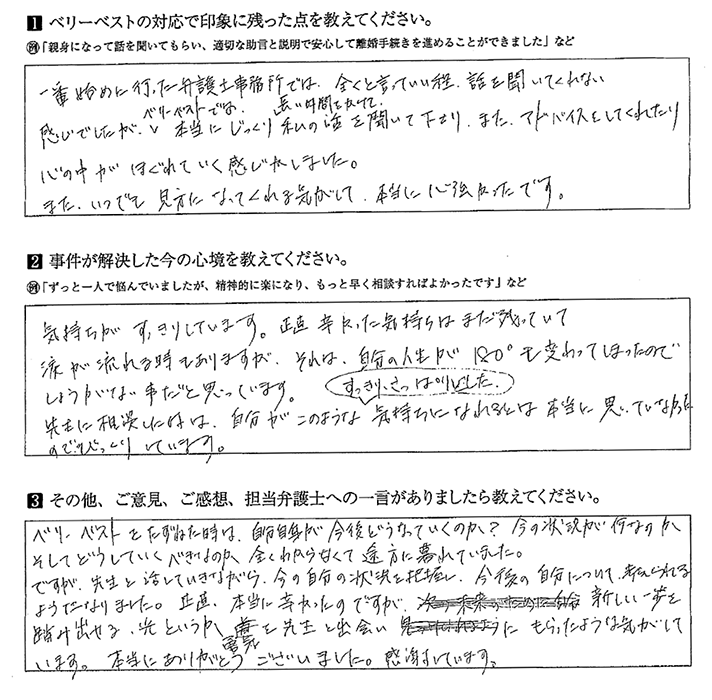 1 ベリーベストの対応で印象に残った点を教えてください。
例「親身になって話を聞いてもらい、適切な助言と説明で安心して離婚手続きを進めることができました」など
一番始めに行った弁護士事務所では、全くと言っていい程、話を聞いてくれない
ベリーベストでは、長い時間をかけて、
感じでしたが、本当にじっくり私の話を聞いて下さり、また、アドバイスをしてくれたり
心の中がほぐれていく感じがしました。
また、いつでも見方になってくれる気がして、本当に心強かったです。
2 事件が解決した今の心境を教えてください。
例「ずっと一人で悩んでいましたが、精神的に楽になり、もっと早く相談すればよかったです」など
気持ちがすっきりしています。正直辛かった気持ちはまだ残っていて
涙が流れる時もありますが、それは、自分の人生が180°も変わってしまったので
しょうがない事だと思っています。すっきり、さっぱりしました。
先生に相談した時は、自分がこのような気持ちになれるとは本当に思っていなかった
のでびっくりしています。
3 その他、ご意見、ご感想、担当弁護士への一言がありましたら教えてください。
ベリーベストをたずねた時は、自分自身が今後どうなっていくのか?今の状況が何なのか
そしてどうしていくべきなのか、全くわからなくて途方に暮れていました。
ですが、先生と話していきながら、今の自分の状況を把握し、今後の自分について、考えられる
ようになりました。正直、本当に辛かったのですが、新しい一歩を
踏み出せる、光というか勇気を先生と出会いにもらったような気がして
います。本当にありがとうございました。感謝しています。